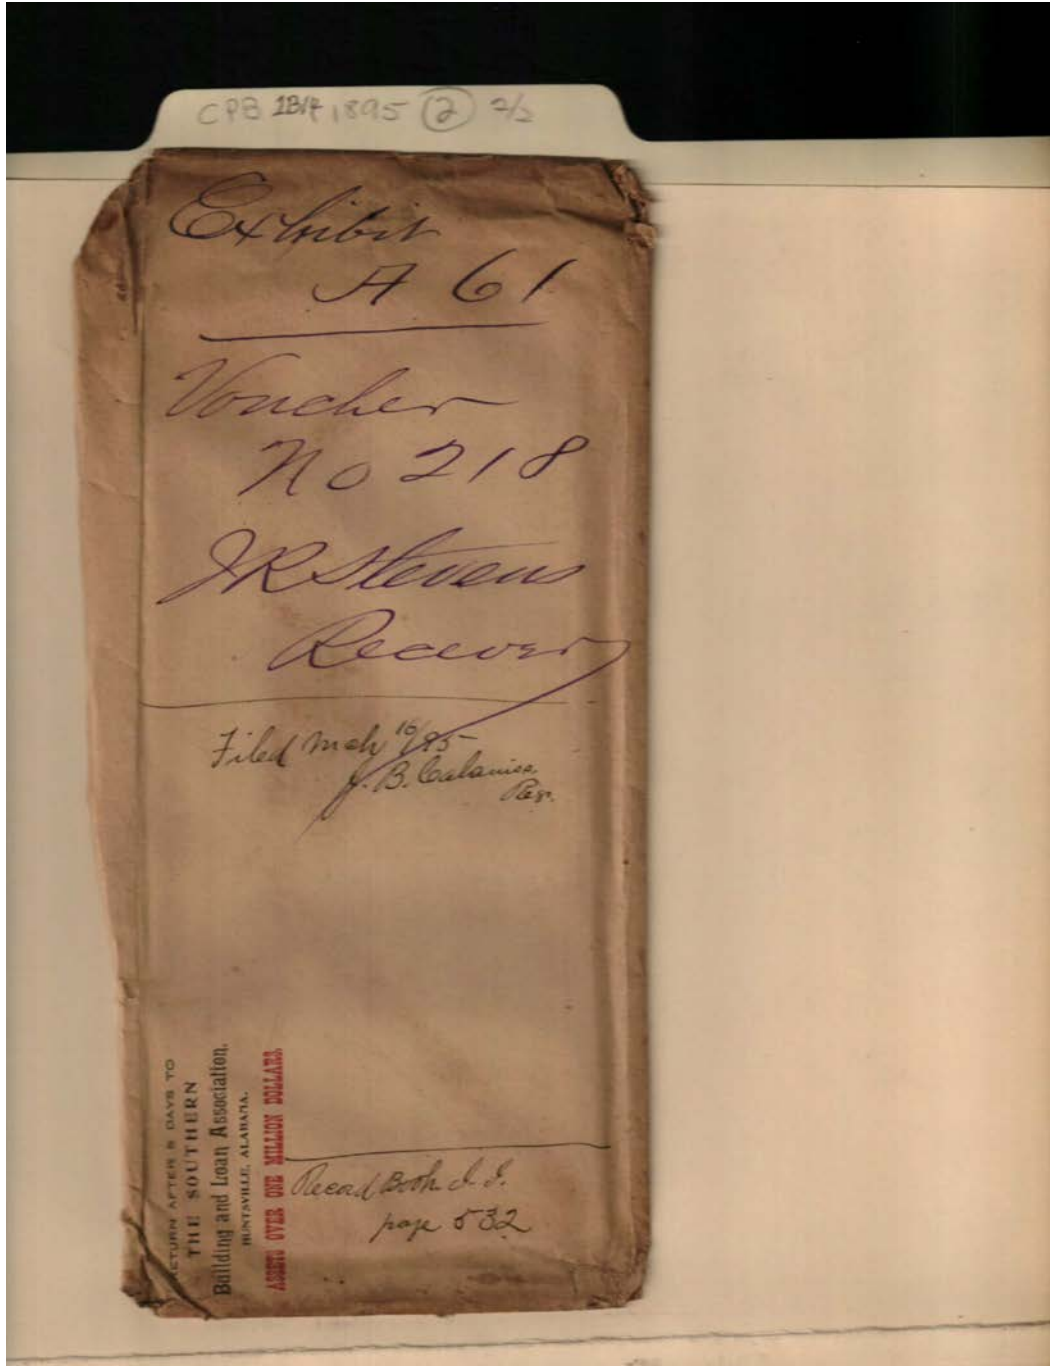 CPB 1895 ② 2/2
Exhibit
A 61
Voucher
No 218
J R Stevens
Receiver
Filed Mch 16/95
J. B.
Record Book
page 532
RETURN AFTER 5 DAYS TO
THE SOUTHERN
Building and Loan Association,
HUNTSVILLE, ALABAMA.
ASSETS OVER ONE MILLION DOLLARS.